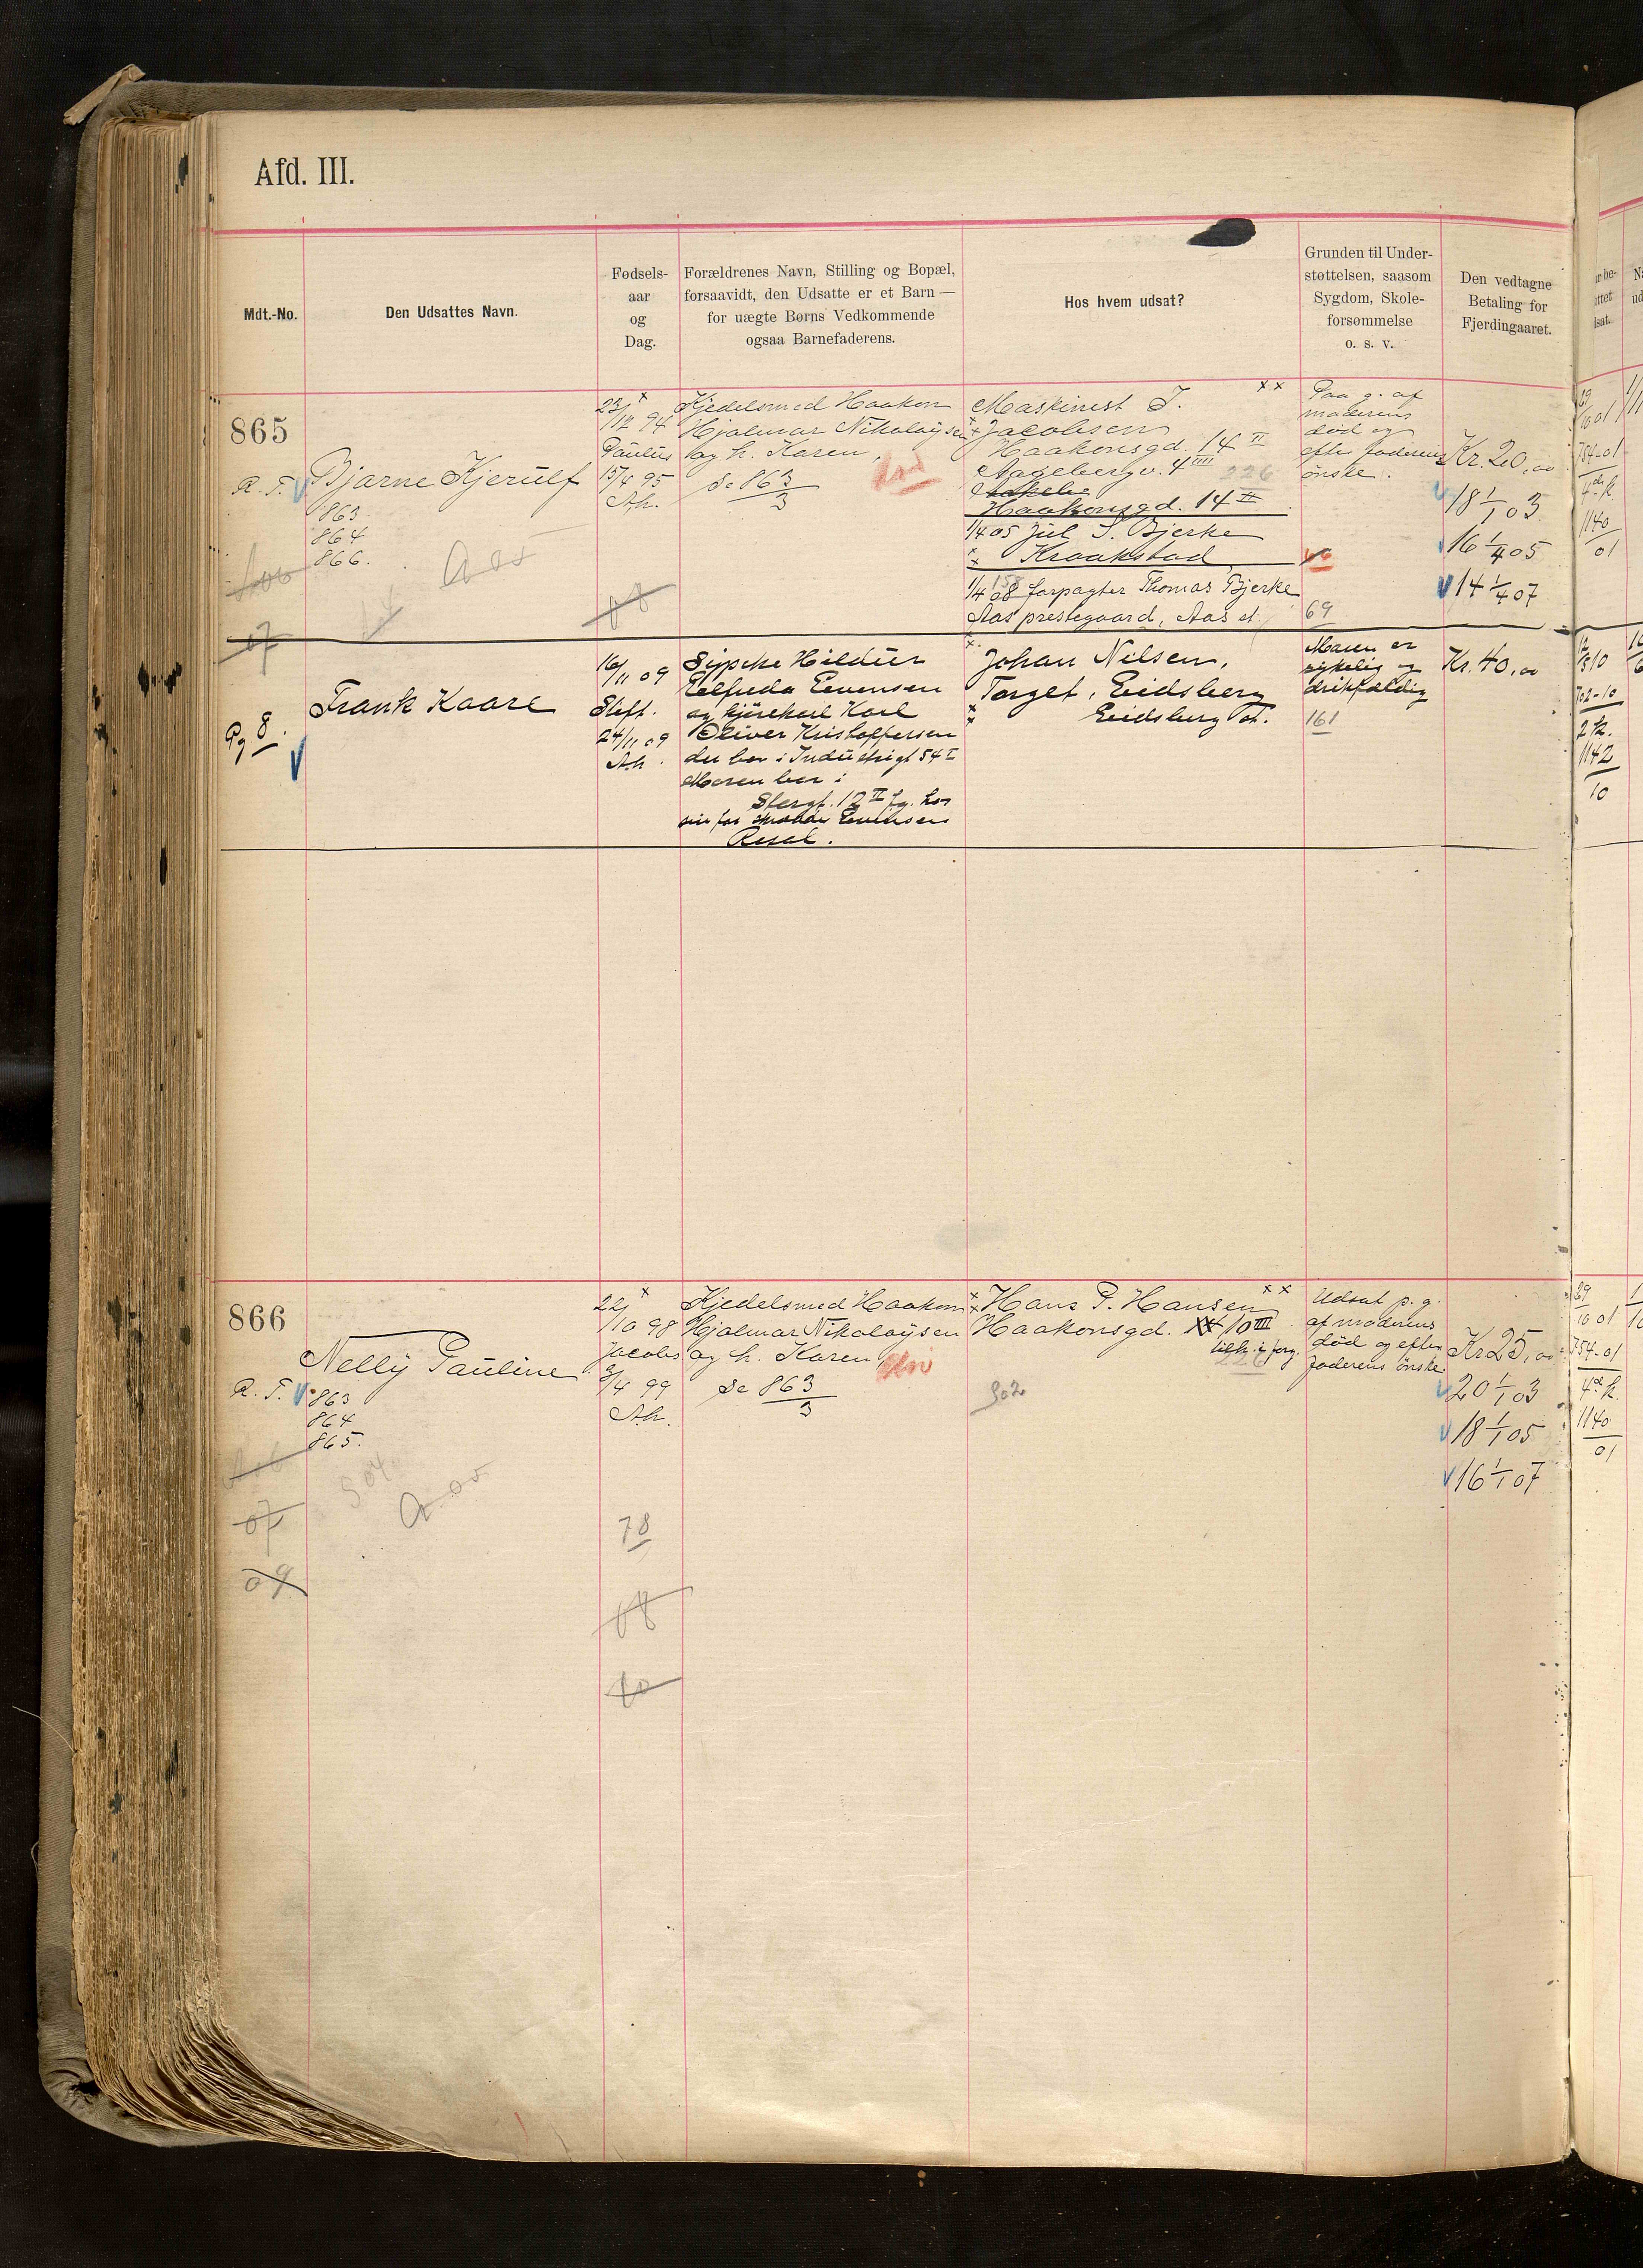 Afd. III.
Mdt.-No.
Den Udsattes Navn.
Fødsels-
aar
og
Dag.
Forældrenes Navn, Stilling og Bopæl,
forsaavidt, den Udsatte er et Barn —
for uægte Børns Vedkommende
ogsaa Barnefaderens.
Hos hvem udsat?
Grunden til Under-
støttelsen, saasom
Sygdom, Skole-
forsømmelse
o. s. v.
Den vedtagne
Betaling for
Fjerdingaaret.
865
R. F.
Bjarne Kjerulf
863
864
866.
07
22/12 94
Paulus
15/4 95
Ah.
Kjedelsmed Haakon
Hjalmar Nikolaysen
og h. Karen.
Se 863
3
Maskinist J.
Jacobsen
Haakonsgd. 14 II
Aagebergv. 4 IIII
226
Haakonsgd. 14 II
1/4 05 Jul S. Bjerke
Kraakstad
158
1/4 08 forpagter Thomas Bjerke
Aas prestegaard, Aas st.
Paa g. af
moderens
død og
efter faderens
ønske.
69
Kr. 20,00
18 1/1 03
16 1/4 05
14 1/4 07
Pg 8.
Frank Kaare
16/11 09
Steff.
24/11 09
Ah.
Hildur
Elfrida Evensen
og kjørekarl Karl
Oliver Kristoffersen
der bor i Industrigt 54 I
Moren bor i
Stergt. 12 II fg. hos
Evensen
Johan Nilsen,
Torget, Eidsberg
Eidsberg st.
Moren er
sykelig og
drikfældig
161
Kr. 40,00
866
R. F.
Nelly Pauline
863
864
865.
07
09
22/10 98
Jacobs
2/4 99
Ah.
78
Kjedelsmed Haakon
Hjalmar Nikolaysen
og h. Karen
Se 863
3
Hans P. Hansen
Haakonsgd. 10 III
Udsat p. g.
af moderens
død og efter
faderens ønske
Kr 25,00
20 1/1 03
18 1/1 05
16 1/1 07
754-01
1140
01
702-10
1142
10
754-01
1140
01